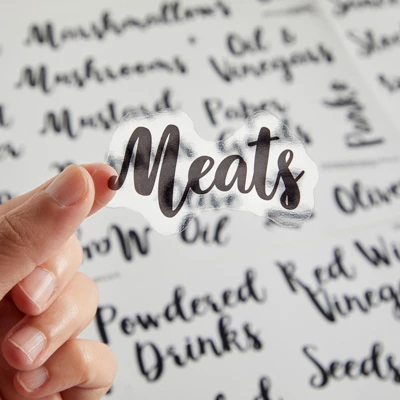 Marshmallows
Oil &
Vinegars
Mushrooms
Mustard
Paper
Meats
Olive
Oil
Red Wi
Vinega
Powdered
Drinks
Seeds